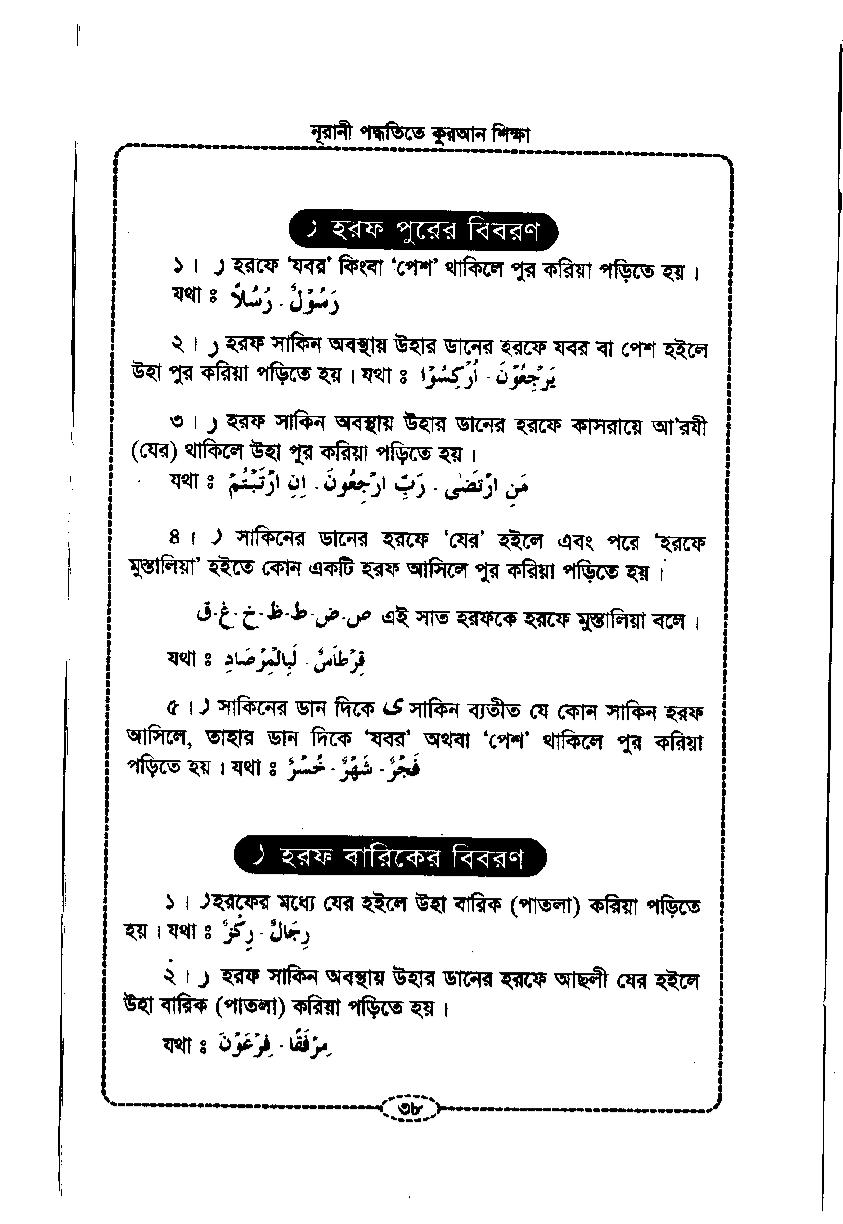 নূরানী পদ্ধতিতে কুরআন শিক্ষা
ر হরফ পুরের বিবরণ
১। ر হরফে ‘যবর’ কিংবা ‘পেশ’ থাকিলে পুর করিয়া পড়িতে হয়।
যথা ঃ رَسُوْلٌ - رُسُلاً
২। ر হরফ সাকিন অবস্থায় উহার ডানের হরফে যবর বা পেশ হইলে
উহা পুর করিয়া পড়িতে হয়। যথা ঃ يَرْجِعُوْنَ - اُرْكِسُوْا
৩। ر হরফ সাকিন অবস্থায় উহার ডানের হরফে কাসরায়ে আ'রযী
(যের) থাকিলে উহা পুর করিয়া পড়িতে হয়।
যথা ঃ مَنِ ارْتَضٰى - رَبِّ ارْجِعُونَ - اِنِ ارْتَبْتُمْ
৪। ر সাকিনের ডানের হরফে ‘যের’ হইলে এবং পরে ‘হরফে
মুস্তালিয়া’ হইতে কোন একটি হরফ আসিলে পুর করিয়া পড়িতে হয়।
ص-ض-ط-ظ-خ-غ-ق এই সাত হরফকে হরফে মুস্তালিয়া বলে।
যথা ঃ قِرْطَاسٌ - لَبِالْمِرْصَادِ
৫। ر সাকিনের ডান দিকে ى সাকিন ব্যতীত যে কোন সাকিন হরফ
আসিলে, তাহার ডান দিকে ‘যবর’ অথবা ‘পেশ’ থাকিলে পুর করিয়া
পড়িতে হয়। যথা ঃ فَجْرٌ - شَهْرٌ - خُسْرٌ
ر হরফ বারিকের বিবরণ
১। ر হরফের মধ্যে যের হইলে উহা বারিক (পাতলা) করিয়া পড়িতে
হয়। যথা ঃ رِجَالٌ - رِكْزٌ
২। ر হরফ সাকিন অবস্থায় উহার ডানের হরফে আছলী যের হইলে
উহা বারিক (পাতলা) করিয়া পড়িতে হয়।
যথা ঃ مِرْفَقًا - فِرْعَوْنَ
৩৮